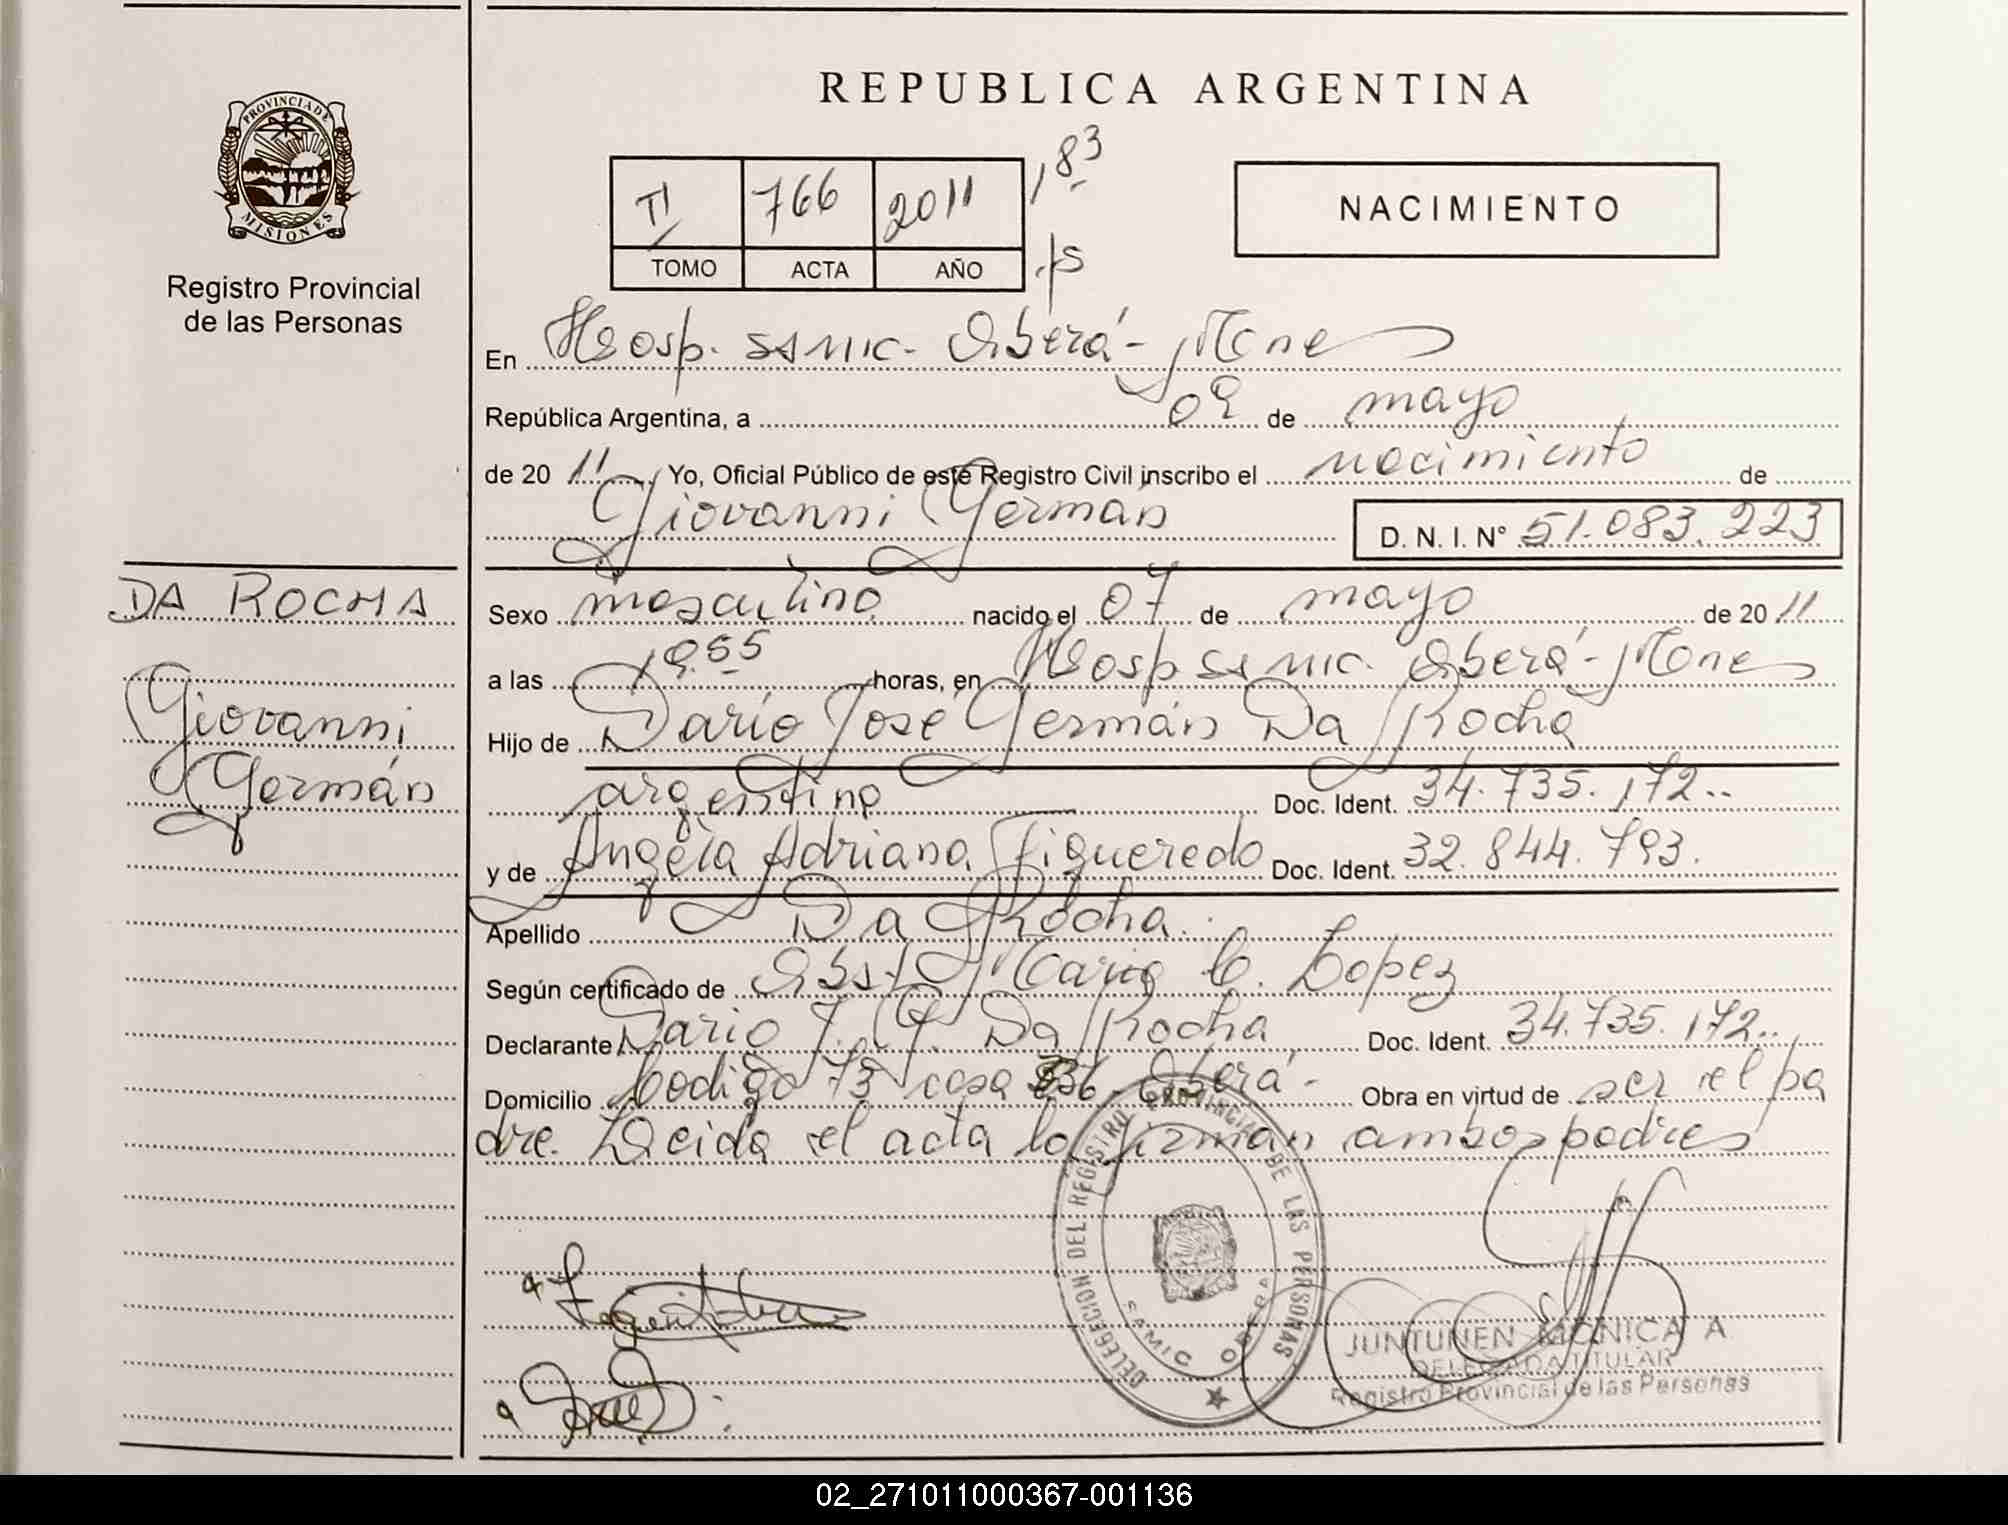 REPUBLICA ARGENTINA
PROVINCIA DE
MISIONES
Registro Provincial
de las Personas
TI 766 2011 183
TOMO ACTA AÑO
NACIMIENTO
En Hosp. SAMIC. Oberá - Mnes
República Argentina, a 09 de mayo
de 20 11 Yo, Oficial Público de este Registro Civil inscribo el nacimiento de
Giovanni Germán D. N. I. Nº 51.083.223
DA ROCHA
Giovanni
Germán
Sexo masculino nacido el 07 de mayo de 20 11
a las 19.55 horas, en Hosp SAMIC. Oberá - Mnes
Hijo de Darío José Germán Da Rocha
argentino Doc. Ident. 34.735.172..
y de Angela Adriana Figueredo Doc. Ident. 32.844.793.
Apellido Da Rocha.
Según certificado de Obst. María C. Lopez
Declarante Darío J. G. Da Rocha Doc. Ident. 34.735.172..
Domicilio Codigo 73 casa Oberá - Obra en virtud de ser el pa
dre. Leida el acta la firman ambos padres
DELEGACION DEL REGISTRO PROVINCIAL DE LAS PERSONAS
SAMIC OBERA
JUNTUNEN MONICA A
DELEGADA TITULAR
Registro Provincial de las Personas
02_271011000367-001136